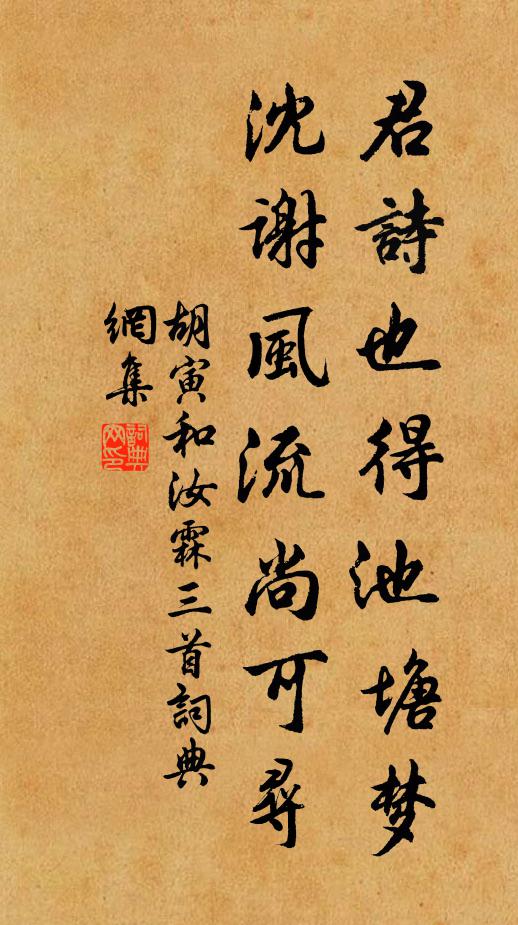 君詩也得池塘梦
沈谢風流尚可尋
胡寅和汝霖三首詞典
網集
詞典
网印